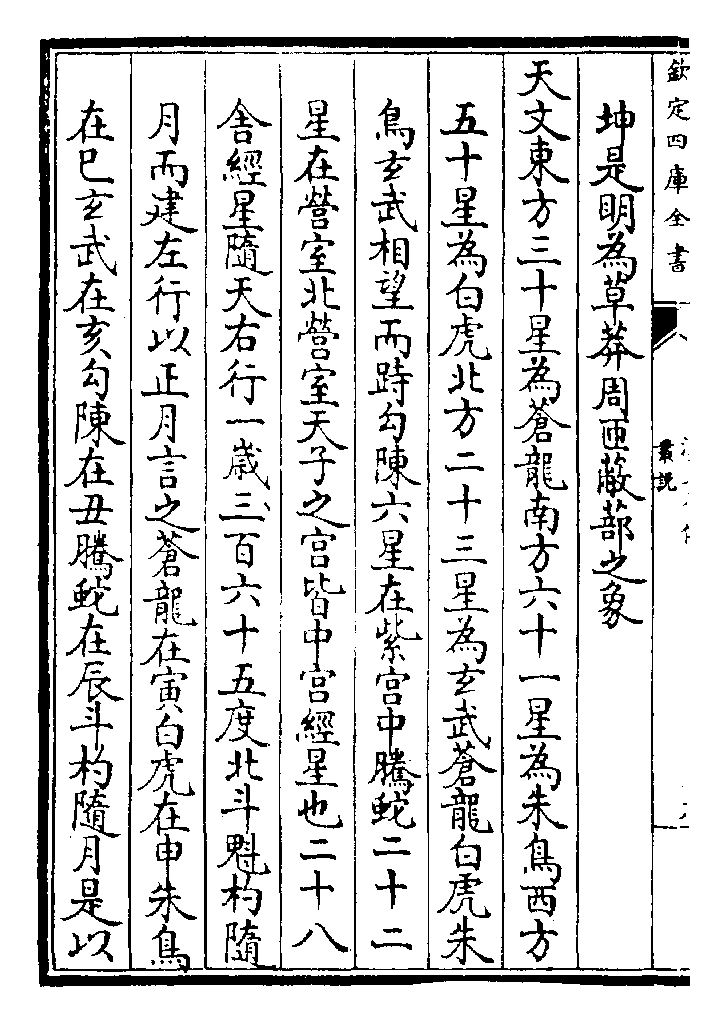 欽定四庫全書
叢說
坤是明為草莽周匝蔽蔀之象
天文東方三十星為蒼龍南方六十一星為朱鳥西方
五十星為白虎北方二十三星為玄武蒼龍白虎朱
鳥玄武相望而跱勾陳六星在紫宫中騰蛇二十二
星在營室北營室天子之宫皆中宫經星也二十八
舎經星隨天右行一歳三百六十五度北斗魁杓隨
月而建左行以正月言之蒼龍在寅白虎在申朱鳥
在巳玄武在亥勾陳在丑騰蛇在辰斗杓隨月是以